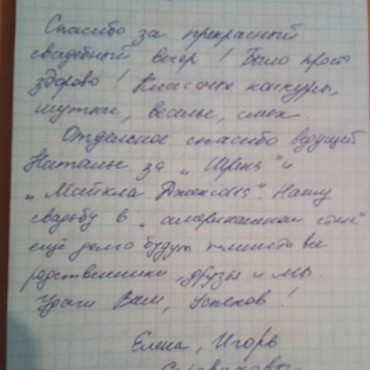 Спасибо за прекрасный
свадебный вечер! Было просто
здорово! Классные конкурсы,
шутки, веселье, смех.
Отдельное спасибо ведущей
Наталье за „Шрека" и
„Майкла Джексона". Нашу
свадьбу в „американском стиле"
ещё долго будут помнить все
родственники, друзья и мы
Удачи Вам, успехов!
Елена, Игорь